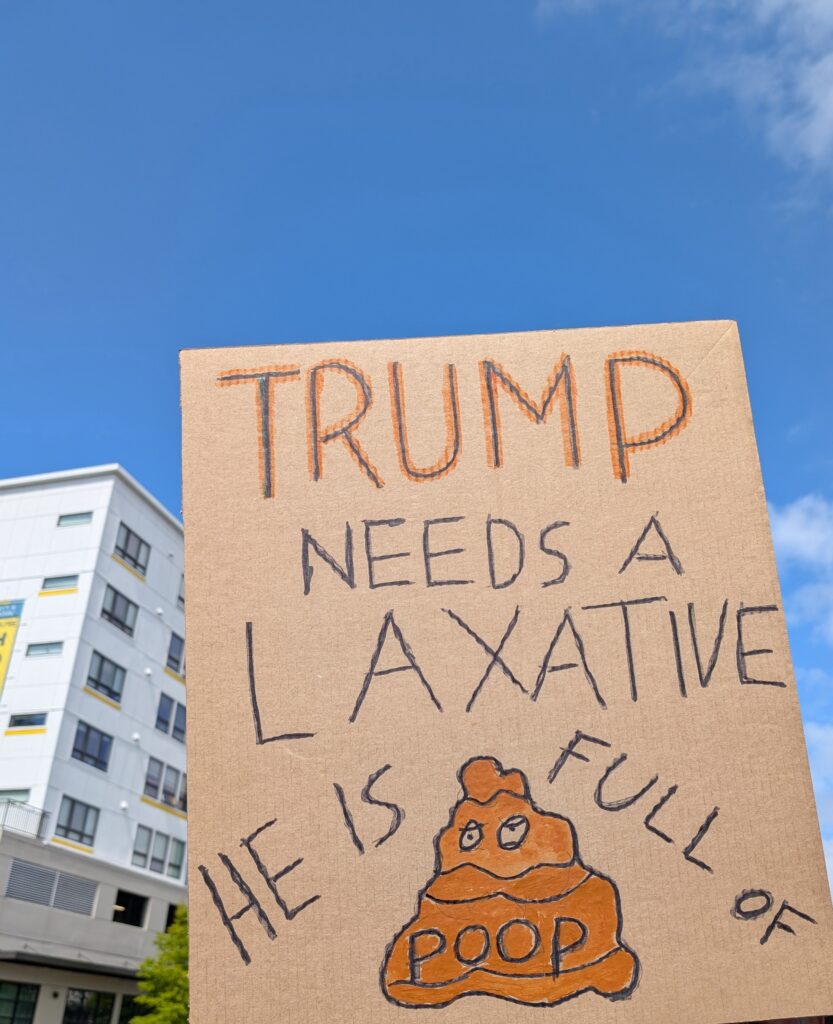 TRUMP
NEEDS A
LAXATIVE
HE IS FULL OF
POOP